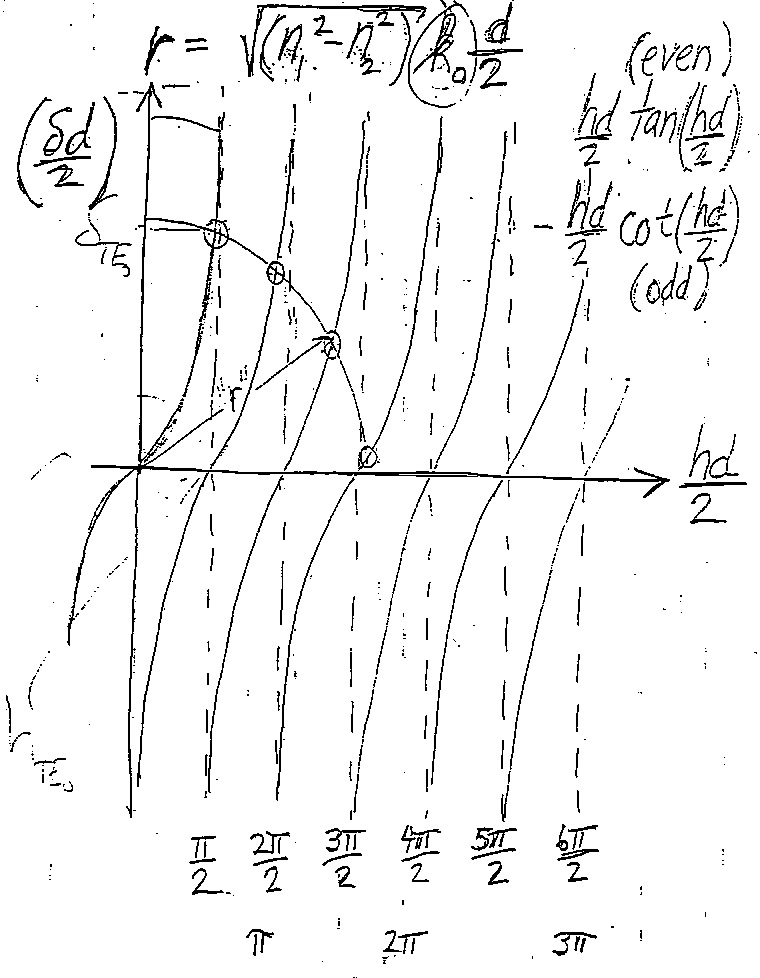 r = √(n₁² - n₂²) k₀ d/2
(even)
hd/2 tan(hd/2)
(δd/2)
δ_TE₀
- hd/2 cot(hd/2)
(odd)
"r"
hd/2
h_TE₀
π/2 2π/2 3π/2 4π/2 5π/2 6π/2
π 2π 3π